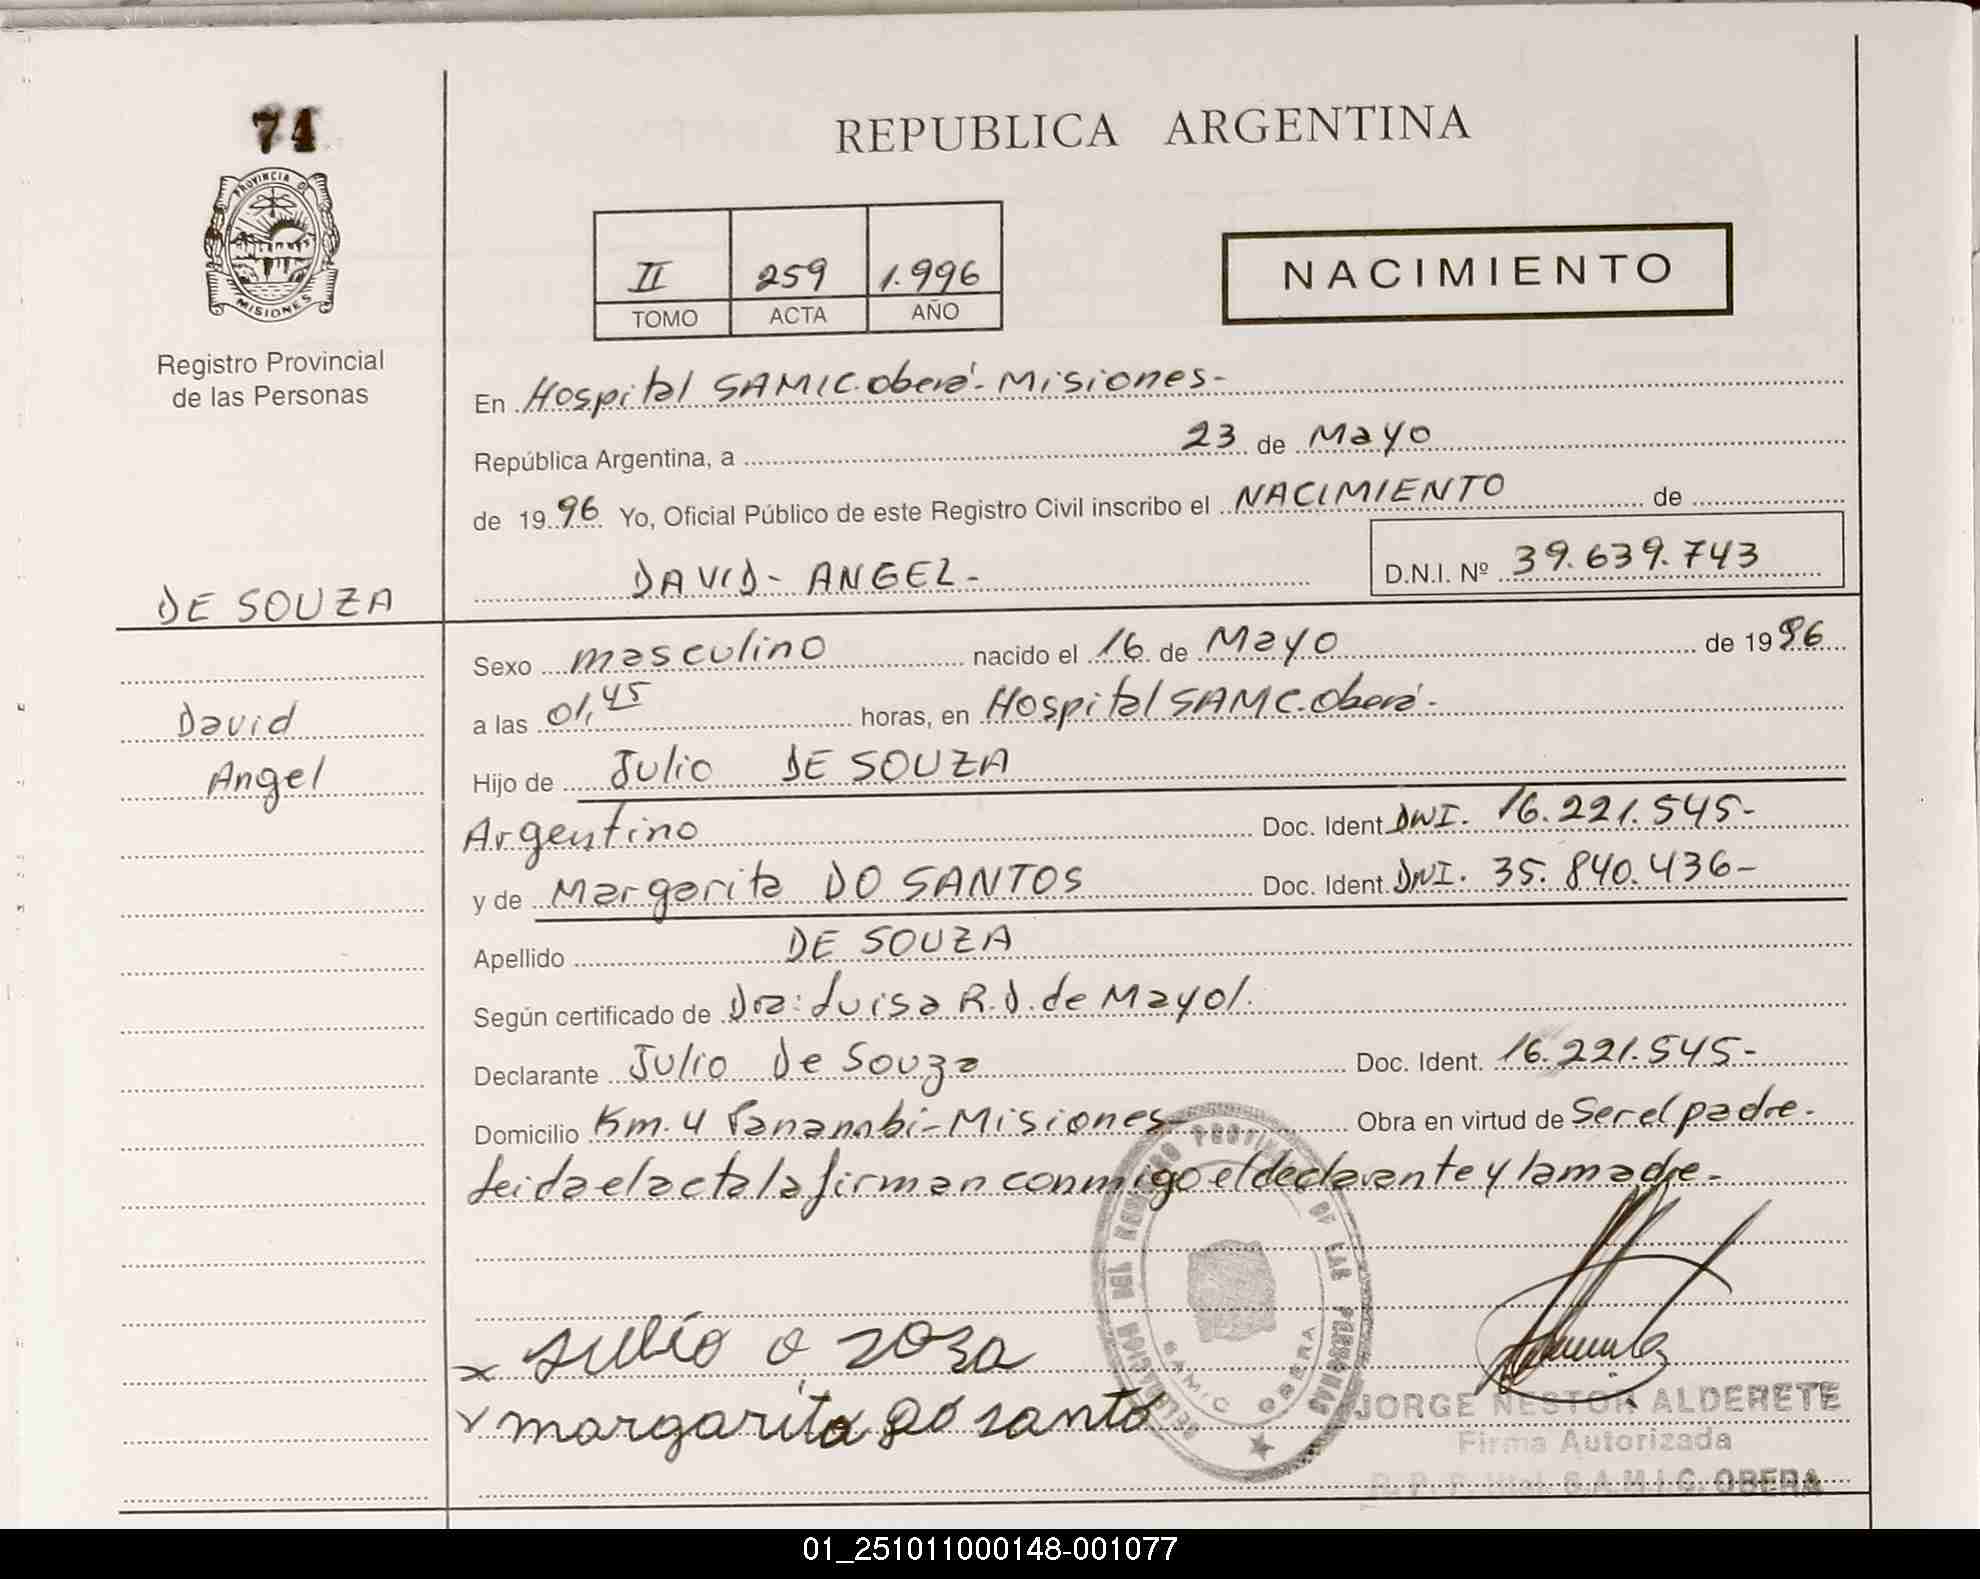 74
PROVINCIA DE
MISIONES
Registro Provincial
de las Personas
REPUBLICA ARGENTINA
II 259 1.996
TOMO ACTA AÑO
NACIMIENTO
En Hospital SAMIC. Oberá - Misiones-
República Argentina, a 23 de Mayo
de 1996 Yo, Oficial Público de este Registro Civil inscribo el NACIMIENTO de
DAVID - ANGEL - D.N.I. Nº 39.639.743
DE SOUZA
David
Angel
Sexo masculino nacido el 16 de Mayo de 1996
a las 01,45 horas, en Hospital SAMIC. Oberá -
Hijo de Julio DE SOUZA
Argentino Doc. Ident DNI. 16.221.545-
y de Margarita DO SANTOS Doc. Ident. DNI. 35.840.436-
Apellido DE SOUZA
Según certificado de Dra: Luisa R.D. de Mayol.
Declarante Julio De Souza Doc. Ident. 16.221.545-
Domicilio Km. 4 Panambí - Misiones Obra en virtud de Ser el padre.
Leida el acta la firman conmigo el declarante y la madre -
x Julio o zoza
x margarita do santo
SAMIC OBERA
JORGE NESTOR ALDERETE
Firma Autorizada
S.A.M.I.C. OBERA
01_251011000148-001077